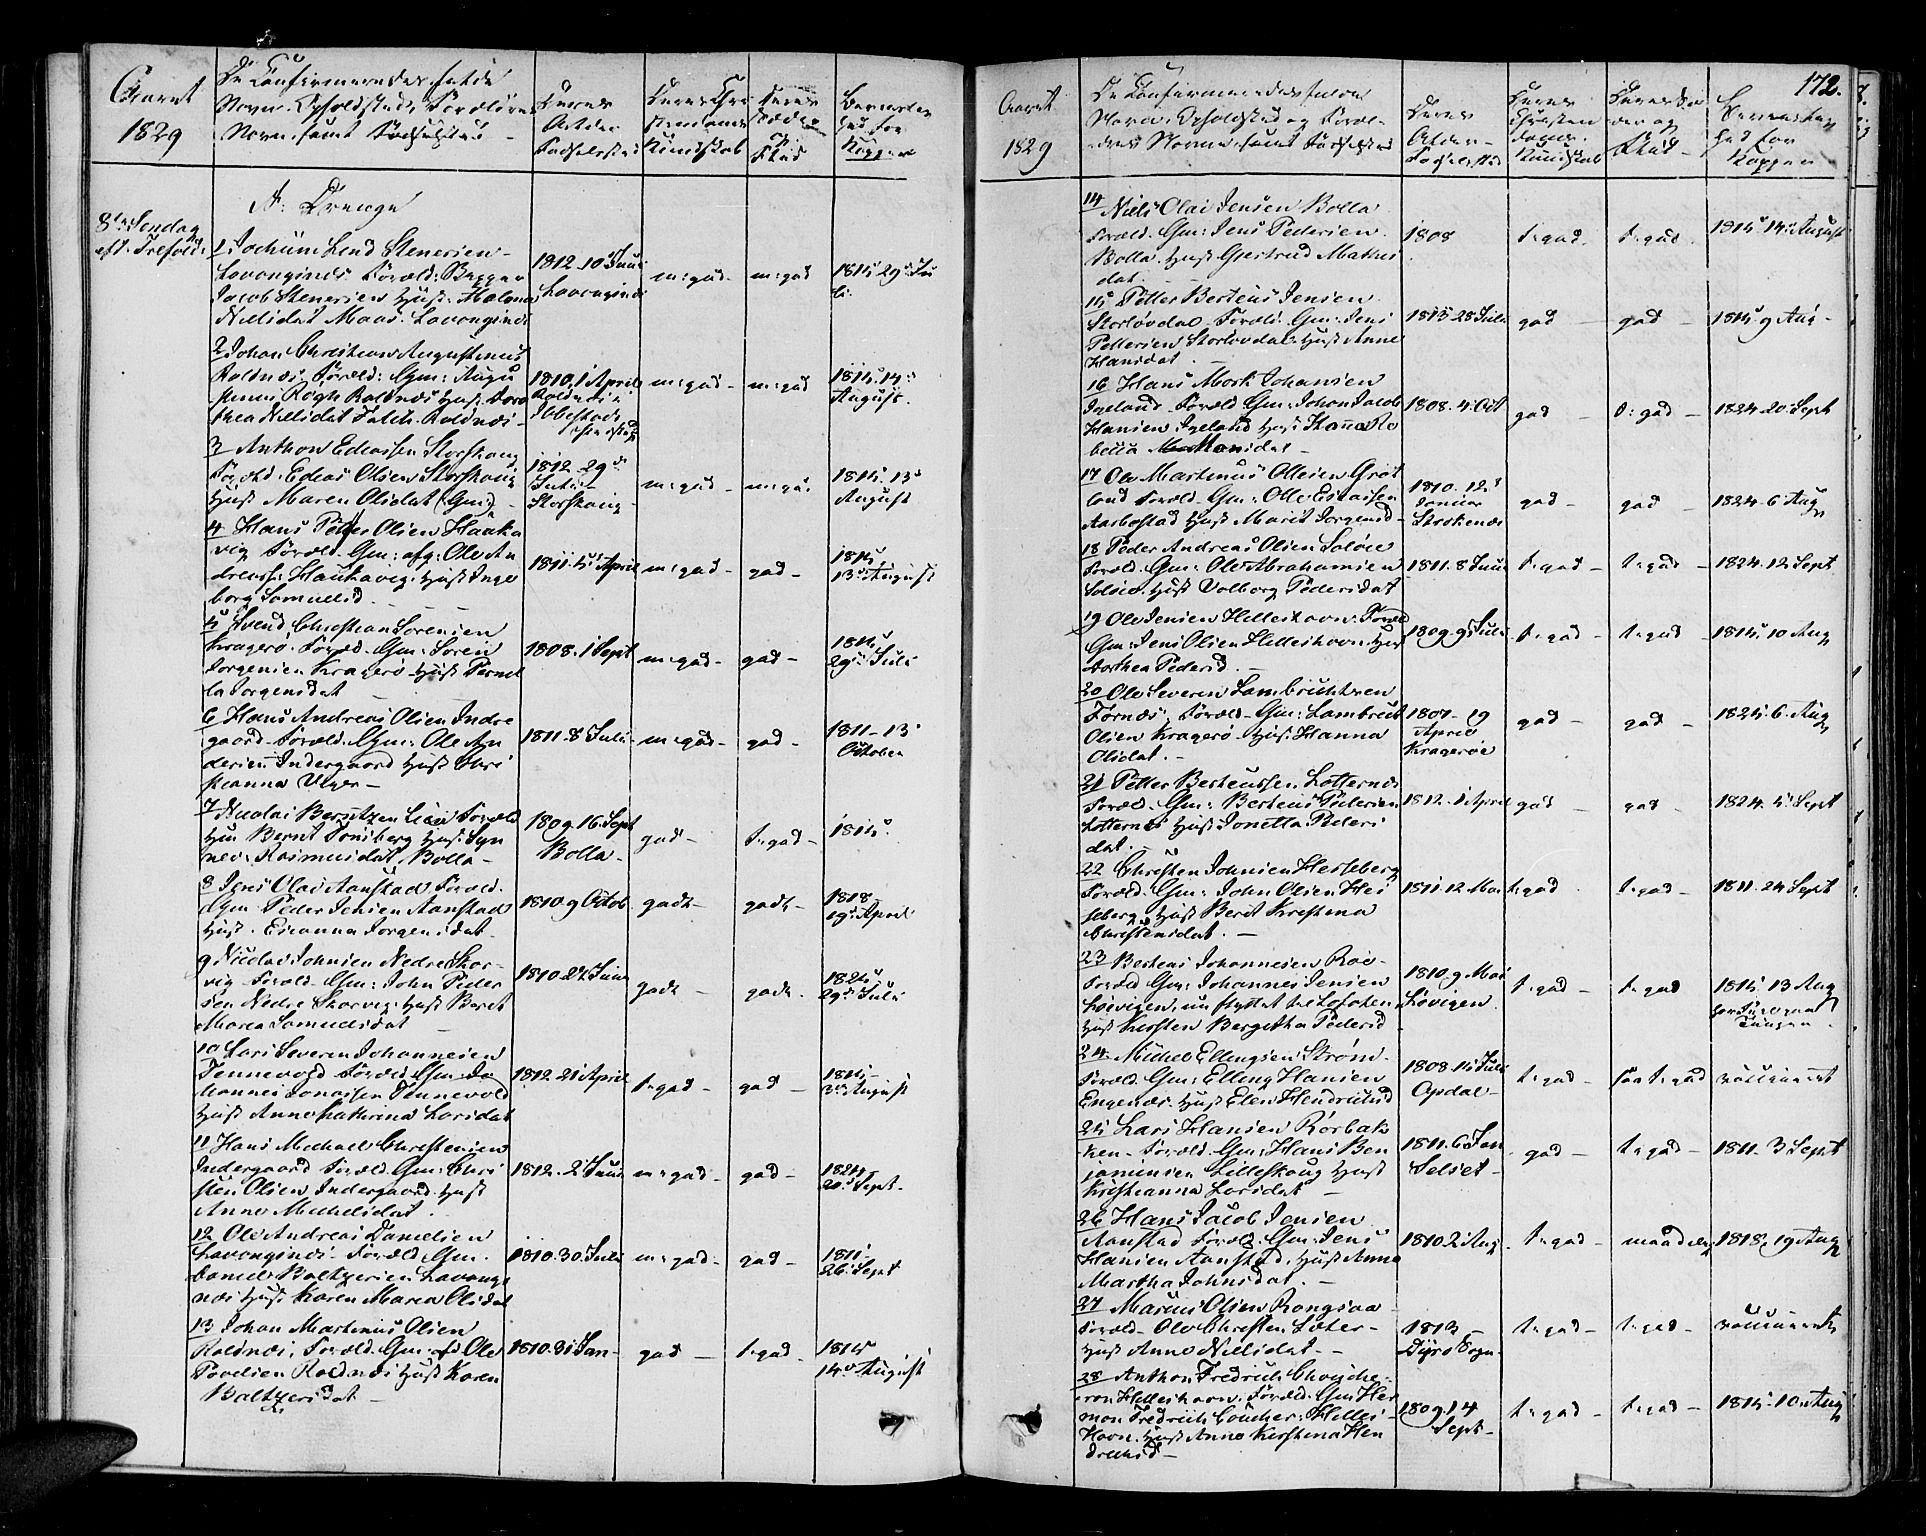 Aaret
1829
De Confirmeredes fulde
Navn. Opholdsted, Forældres
Navn, samt Fødselsted
Deres
Alder
Fødselssted
Kundskab
Flid
A: Drenge
8de Søndag
eft. Trefold:
1 Jochum Lind Stenersen
Lavangsnæs Foræld:
Jacob Stenersen Hust.
Nielsdat Maas. Lavangsnæs
1812 10 Juni
Lavangsnæs
m: god
m: god
1815 29 Ju
li
2 Johan Christian Augustinus
Roldnæs. Foræld: Gm: Augu
stinus Rolnæs Hust.
thea Nielsdat Roldnæs
1810, 1 April
Roldnæs i
Ibbestads
m: god
m: god
1815. 14de
August.
3 Anthon Edeassen Storskoug
Foræld: Edeas Olsen Storskoug
Hust Maren Olsdat (Gm:)
1812 29de
Juli
Storskoug
m: god
m: go:
1815. 13de
August
4 Hans Peter Olsen Haaka
vig Foræld. Gm: afg: Ole An
dreass: Haukavig. Hust Inge
borg Samuelsd.
1811. 5 April
m: god
god
1815
13de August
5 Svend Christian Sørensen
Kragerø. Foræld. Gm: Søren
Jørgensen Kragerø Hust Pernel
la Jørgensdat
1808. 1 Sept
m: god
god
1815.
29de Juli
6 Hans Andreas Olsen Indre
gaard Foræld. Gm: Ole An
dersen Indergaard Hust Chri
stianna
1811. 8 Juli
m: god
god
1811 - 13
October
7 Nicolai Berntzen Foræld
Hm Bernt Tønsberg Hust. Syn
nev: Rasmusdat Bolla
1809 16 Sept
Bolla
god
t: god
1815.
8 Jens Olai Aanstad Foræld.
Gm Peder Jensen Aanstad
Hust. Jørgensdat
1810 9 Octob
godt
godt
1818
19de April
9 Nicolai Johnsen Nedre Skor
vig Foræld. Gm: John Peder
sen Nedre Skorvig: Hust Berit
Marea Samuelsdat
1810. 27 Juni
godt
godt.
1825
29de Juli
10 Lars Severin Johannesen
Tennevold Foræld. Gm: Jo
hannes Jonassen Tennevold
Hust Anna Kathrina Larsdat
1812. 21 April
t: god
god
1815
August
11 Hans Michael Christensen
Indergaard Foræld. Gm: Chri
sten Olsen Indergaard. Hust
Anne Michelsdat
1812. 2 Juni
m: god
god
1824
20de Sept
12 Ole Andreas Danielsen
Lavangsnæs. Foræld. Gm:
Daniel Baltzersen Lavangs
næs Hust Karen Marea Olsdat
1810. 30 Juli
m: god
god
26 Sept
13 Johan Martinus Olsen
Roldnæs. Foræld. Gm: afd Ole
Roldnæs Hust Karen
Baltzersdat
1810. 31 Jan
god
t: god
1815
14de August
172.
Aaret
1829
De Confirmeredes fulde
Navn. Opholdsted og Foræl
dres Navne, samt Fødselsted
Deres
Alder
Fødselssted
Deres
Christen
doms
Kundskab
Flid
for
Kopper
14 Niels Olai Jensen Bolla
Foræld. Gm: Jens Pedersen
Bolla. Hust Gjertrud Mathis
dat
1808
t: god
t: god
1815 14de August
15 Petter Berteus Jensen
Storløvdal Foræld. Gm: Jens
Pettersen Storløvdal Hust Anne
Hansdat
1813 28 Juli
god
god
1815 9 Aug
16 Hans Mork Johansen
Foræld Gm: Johan Jacob
Hansen Hust Hanna Re
becca Monsdat
1808. 4 Oct
god
t: god
1824. 20 Sept
17 Ole Martinus Ollesen Grøt
land Foræld. Gm: Olle Esaiassen
Aarbostad Hust Marit Jørgensd
1810. 12
Januar
god
god
1824. 6 Aug
18 Peder Andreas Olsen Soløe
Foræld. Gm: Ole Abrahamsen
Soløe. Hust Volborg Pedersdat
1811. 8 Juni
t: god
t: god
1824. 12 Sept
19 Ole Jensen Helleshavn. Foræld
Gm: Jens Olsen Helleshavn. Hust
Dorthea Pedersd.
1809. 9 Juli
t: god
t: god
1815. 10 Aug
20 Ole Severin Lambrichtsen
Fornæs. Foræld. Gm: Lambricht
Olsen Kragerø. Hust Hanna
Olsdat.
1807 - 19
April
Kragerøe
god
god
1825 6. Aug
21 Petter Berteussen Lotternes
Foræld. Gm: Berteus Pedersen
Lotternes Hust Jonetta Peders
dat
1812. 1 April
god
god
1824. 5 Sept
22 Christen Johnsen Hesseberg
Foræld. Gm: John Olsen Hes
seberg Hust Berit Kristina
Christensdat.
1811 12 Mai
t: god
t: god
1811. 24 Sept
23 Berteus Johannesen Roe
Foræld Gm: Johannes Jensen
Løvigen, nu flyttet til Lofoten
Hust Kirsten Bergitha Pedersd
1810 9 Mai
Løvigen
t: god
t: god
1815 13 Aug
24 Michel Ellingsen Strøm
Foræld. Gm: Elling Hansen
Engenæs. Hust Elen Hendrichsd
1808. 15 Juli
Opdal
t: god
saa t: god
vaccineret
25 Lars Hansen Rørbak
ken Foræld. Gm: Hans Ben
jaminsen Lilleskoug Hust
Kristianna Larsdat
1811. 6 Jan
Selset
god
t: god
1811. 3 Sept
26 Hans Jacob Jensen
Aanstad Foræld. Gm: Jens
Hansen Aanstad. Hust Anna
Martha Johnsdat.
1810. 2 Aug
t: god
maadelig
1818. 19 Aug
27 Marcus Olsen Rongsaa
Foræld. Ole Christen
Hust Anne Nielsdat
1813
Dyrø Sogn
t: god
t: god
vaccineret
28 Anthon Fredrich
Helleshavn: Foræld. Gm: Her
man Fredrich Helles
Havn. Hust Anne Kirstina Hen
drichsd
1809. 14
Sept
t: god
t: god
1815. 10 Aug